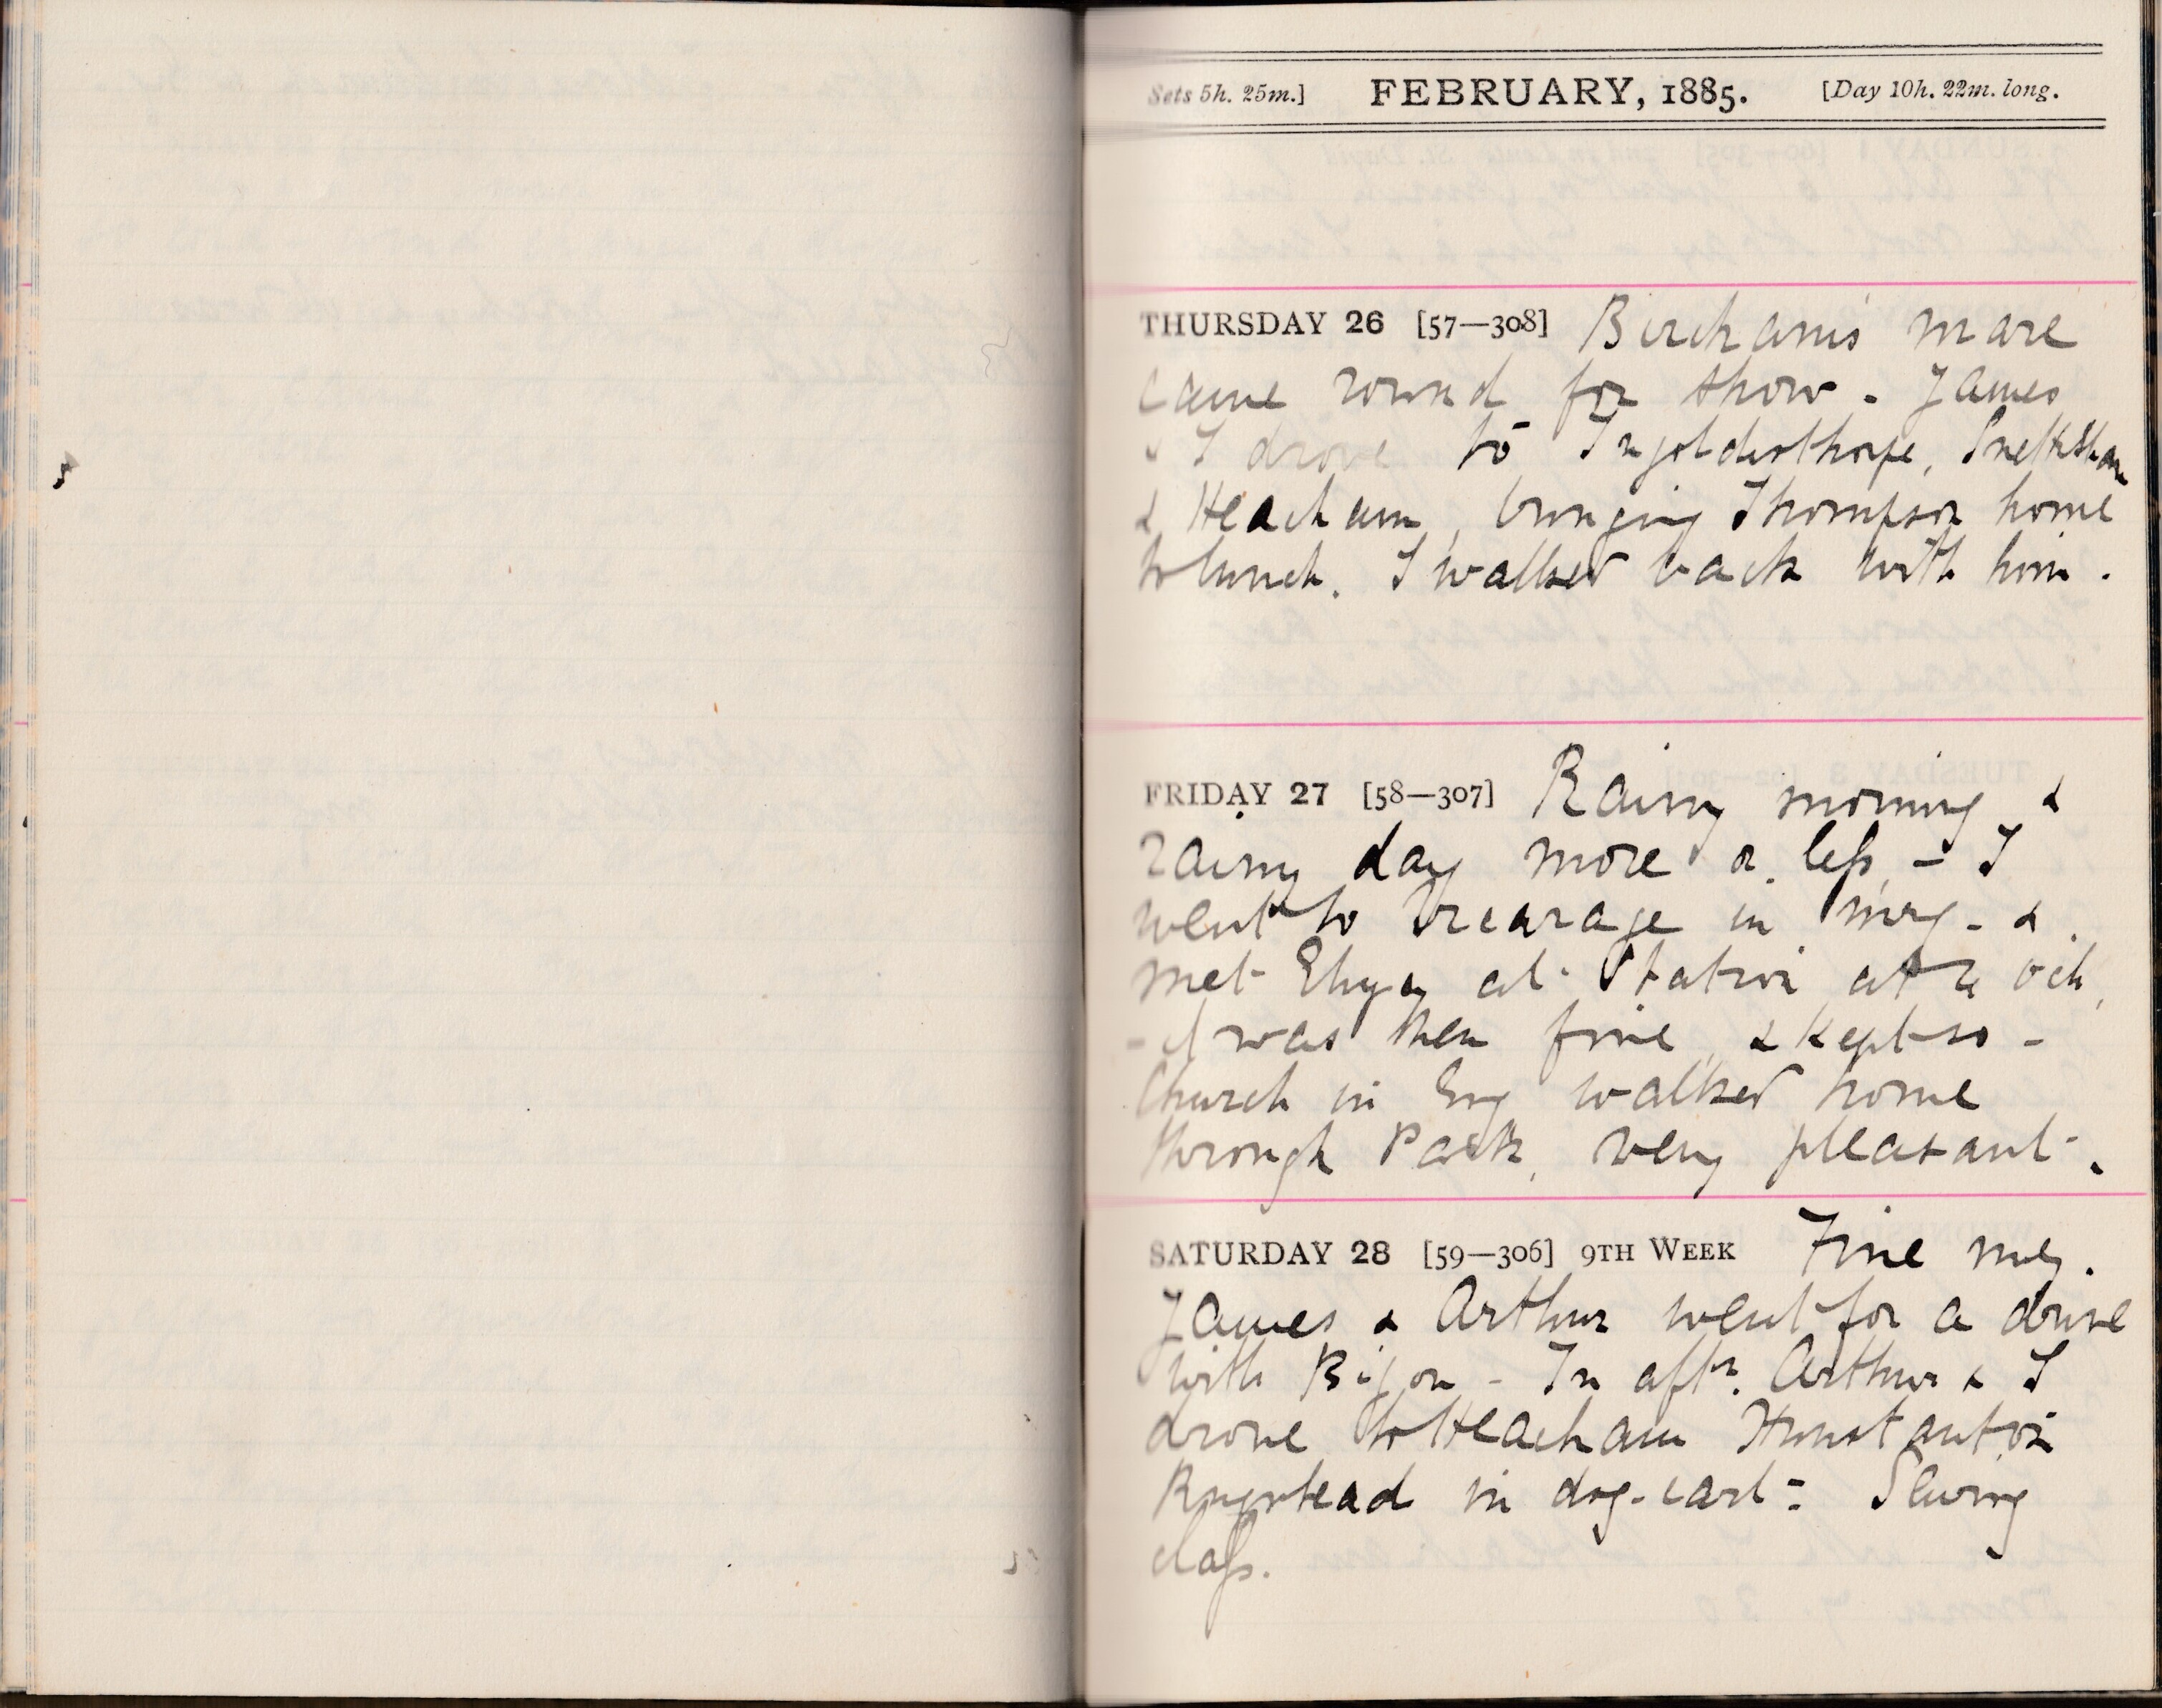 Sets 5h. 25m.] FEBRUARY, 1885. [Day 10h. 22m. long.
THURSDAY 26 [57—308] Bircham's mare
came round for show. James
& I drove to Ingoldisthorpe, Snettisham
& Heacham, bringing Thompson home
to lunch. I walked back with him.
FRIDAY 27 [58—307] Rainy morning &
rainy day more or less, – I
went to Vicarage in mng – &
met at Station at
– was then fine, & kept so –
Church in Evg walked home
through Park, very pleasant.
SATURDAY 28 [59—306] 9TH WEEK Fine mg.
James & Arthur went for a drive
with Bijou – In aftn. Arthur & I
drove to Heacham Hunstanton
Ringstead in dog-cart –
class.